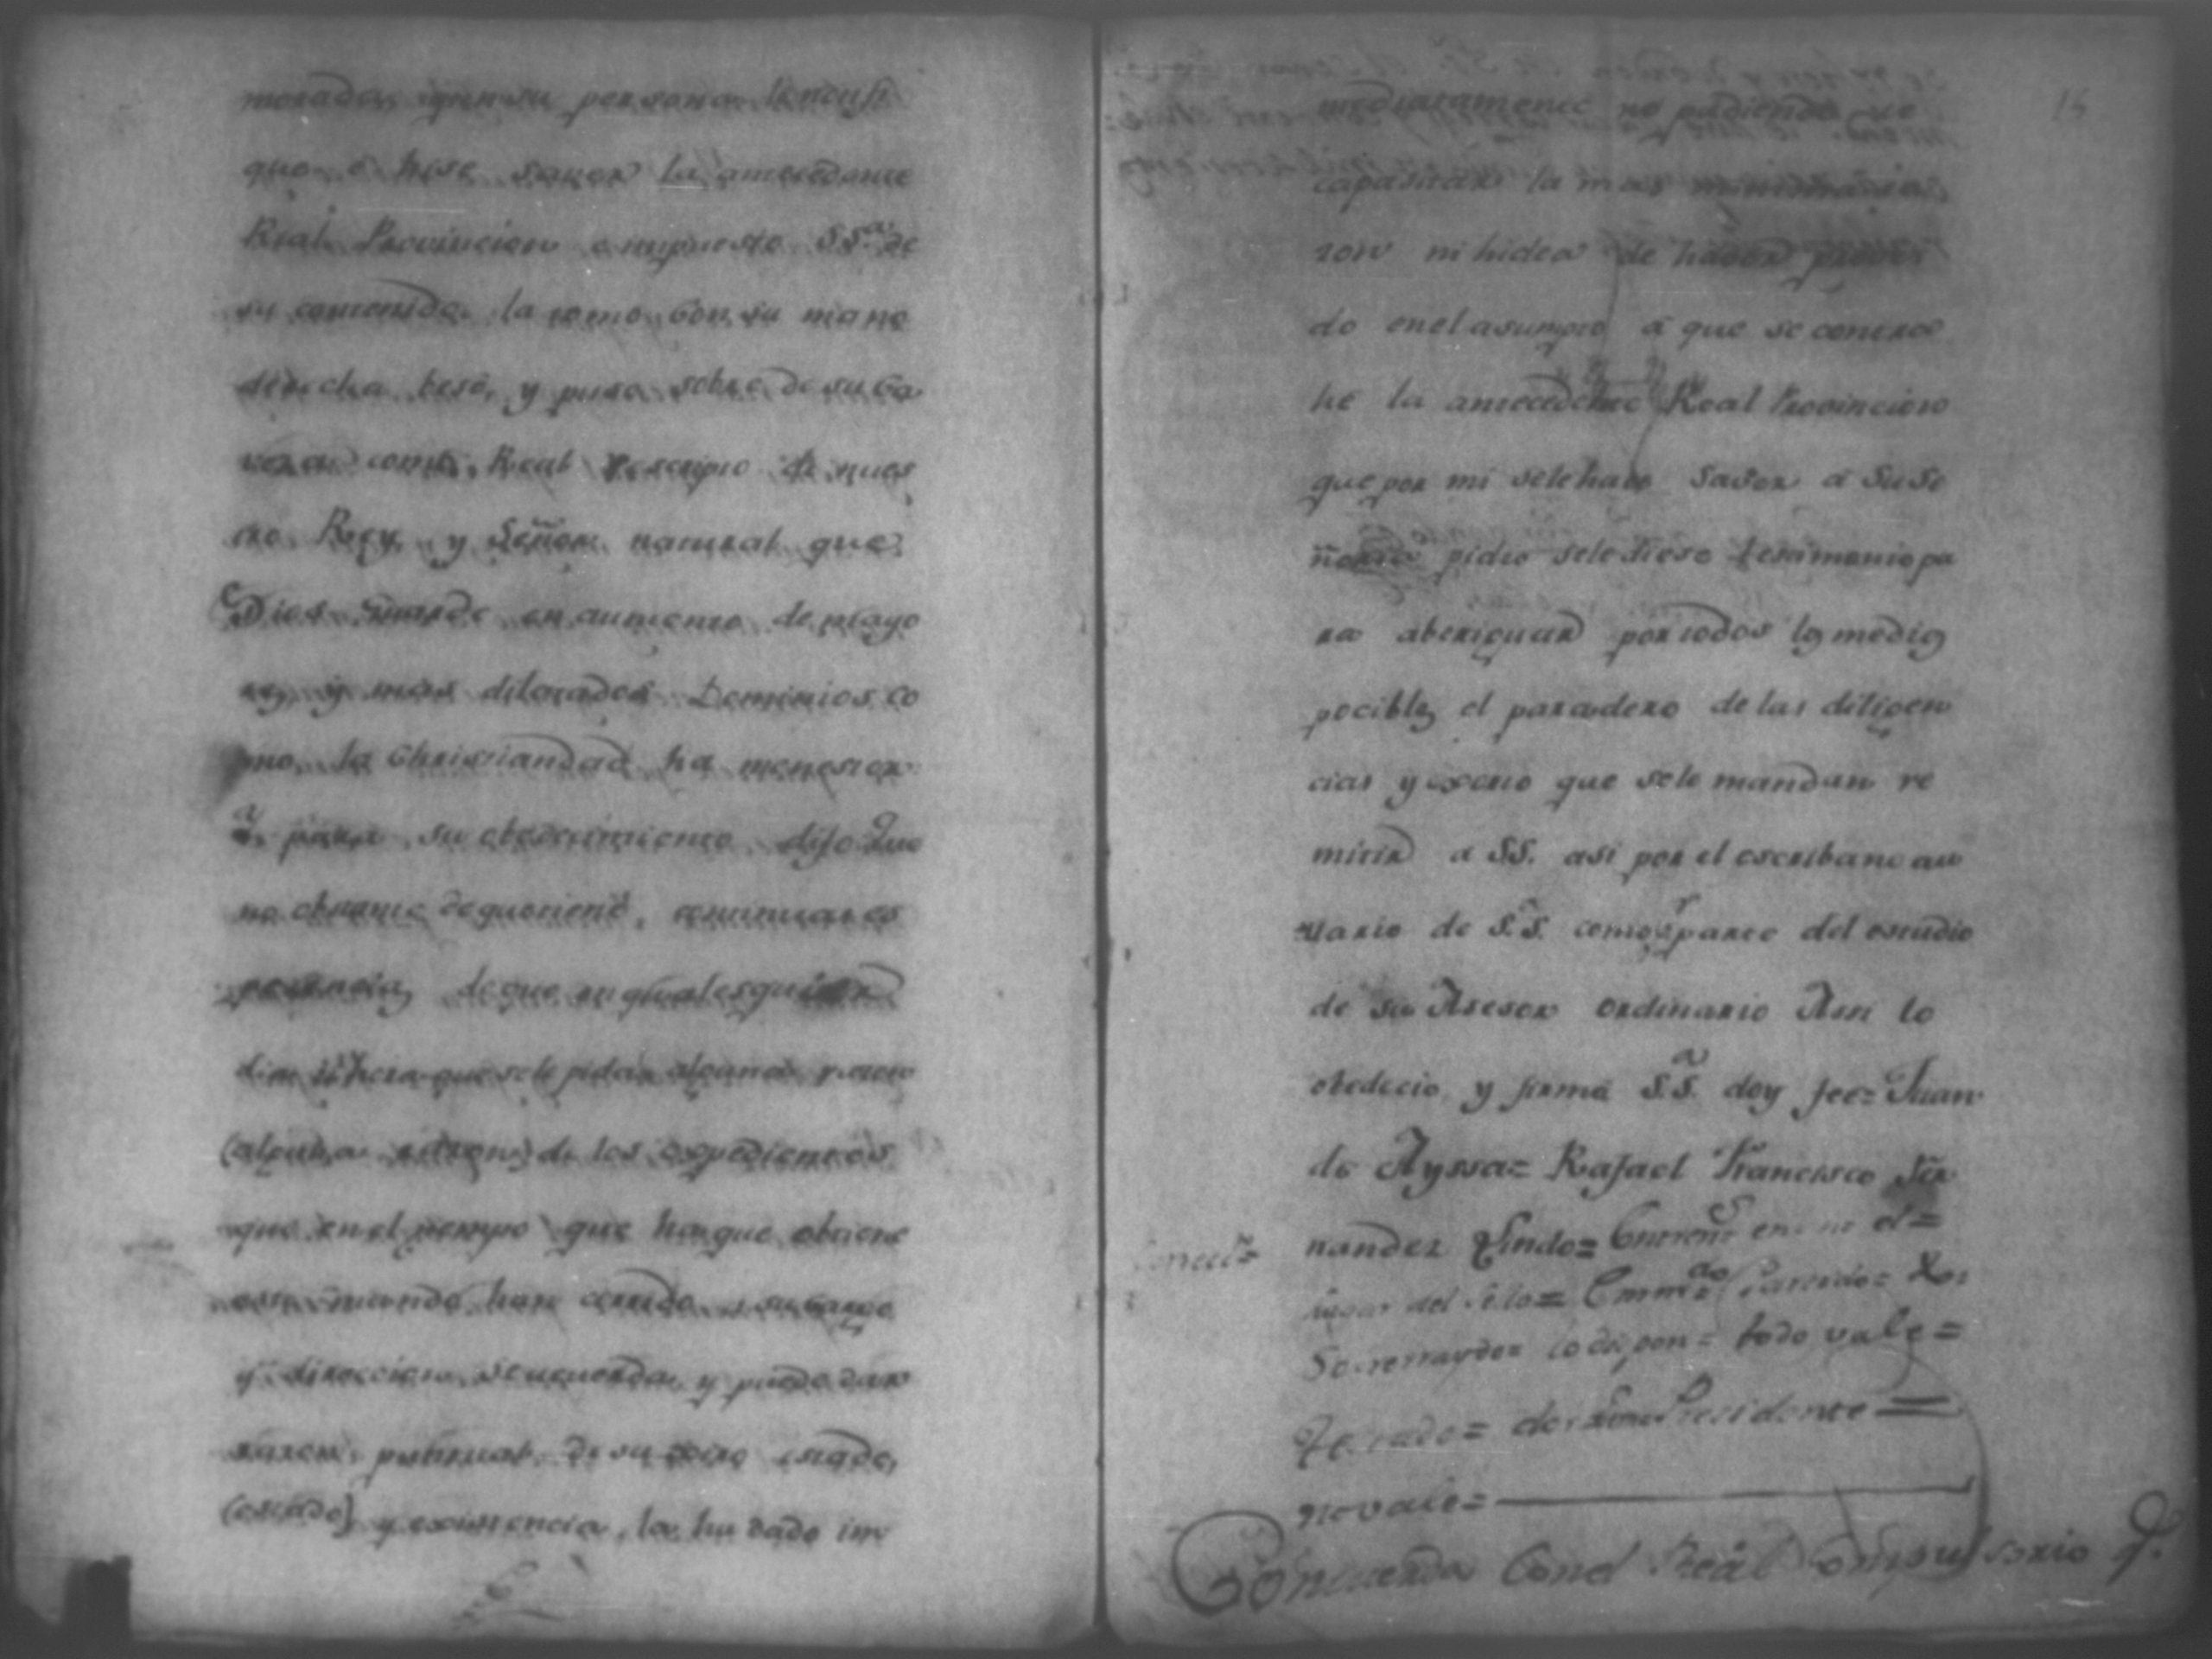 morada, y en su persona le notifi
que é hise saver la antecedente
Real Provincion e impuesto SS.a de
su contenido la tomo con su mano
derecha besó, y puso sobre de su ca
veza como Real Rescripto de nues
tro Rey y Señor natural que
Dios guarde en aumento de mayo
res, y mas dilatados Dominios co
mo la Christiandad ha menester
a para su obedecimiento dijo Que
no obstante de que tiene
de que en qualesquiera
dia u hora que sele pida alguna razon
(alguna razon) de los expedientes
que en el tiempo que ha que obtiene
este mando han a su cargo
y direccion se acuerda, y puede dar
razon puntual de su estado,
(estado) y existencia, la ha dado in
15
mediatamente no pudiendo ve
la mas
ron ni hidea de haver provei
do en el asumpto á que se contra
he la antecedente Real Provincion
que por mi sele haze saver á Suse
ñoria pidio sele diese testimonio pa
ra aberiguar por todos los medios
pocibles el paradero de las diligen
cias y exorto que sele mandan re
mitir a SS. asi por el escribano ac
tuario de S.S. como por parte del estudio
de su Asesor ordinario Assi lo
obedecio y firmó S.S.a doy fee= Juan
de Ayssa= Rafael Francisco Fer
nandez Lindo= el=
lugar del sello= Emm.do =
todo vale=
Presidente=
no vale=
Concuerda Con el Real Compulsorio q.